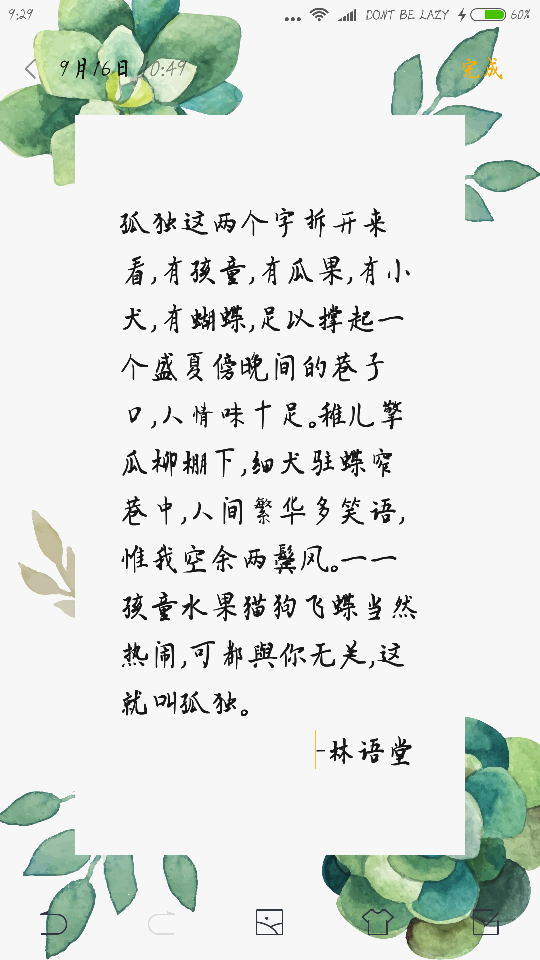 9:29
DON'T BE LAZY
60%
9月16日 10:49
完成
孤独这两个字拆开来
看,有孩童,有瓜果,有小
犬,有蝴蝶,足以撑起一
个盛夏傍晚间的巷子
口,人情味十足。稚儿擎
瓜柳棚下,细犬驻蝶窄
巷中,人间繁华多笑语,
惟我空余两鬓风。——
孩童水果猫狗飞蝶当然
热闹,可都與你无关,这
就叫孤独。
-林语堂